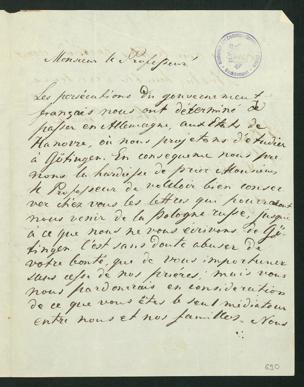 Monsieur le Professeur
Les persécutions du gouvernement
français nous ont déterminé de
passer en Allemagne, aux Etats de
Hanovre, où nous projetons d'étudier
à Göttingen. En conséquence nous pre-
nons la hardiesse de prier Monsieur
le Professeur de vouloir bien conser-
ver chez vous les lettres qui pourraient
nous venir de la Pologne russe, jusqu'
à ce que nous ne vous écrivons de Göt-
tingen. C'est sans doute abuser de
votre bonté, que de vous importuner
sans cesse de nos prières; mais vous
nous pardonerais en considération
de ce que vous êtes le seul médiateur
entre nous et nos familles. Nous
690